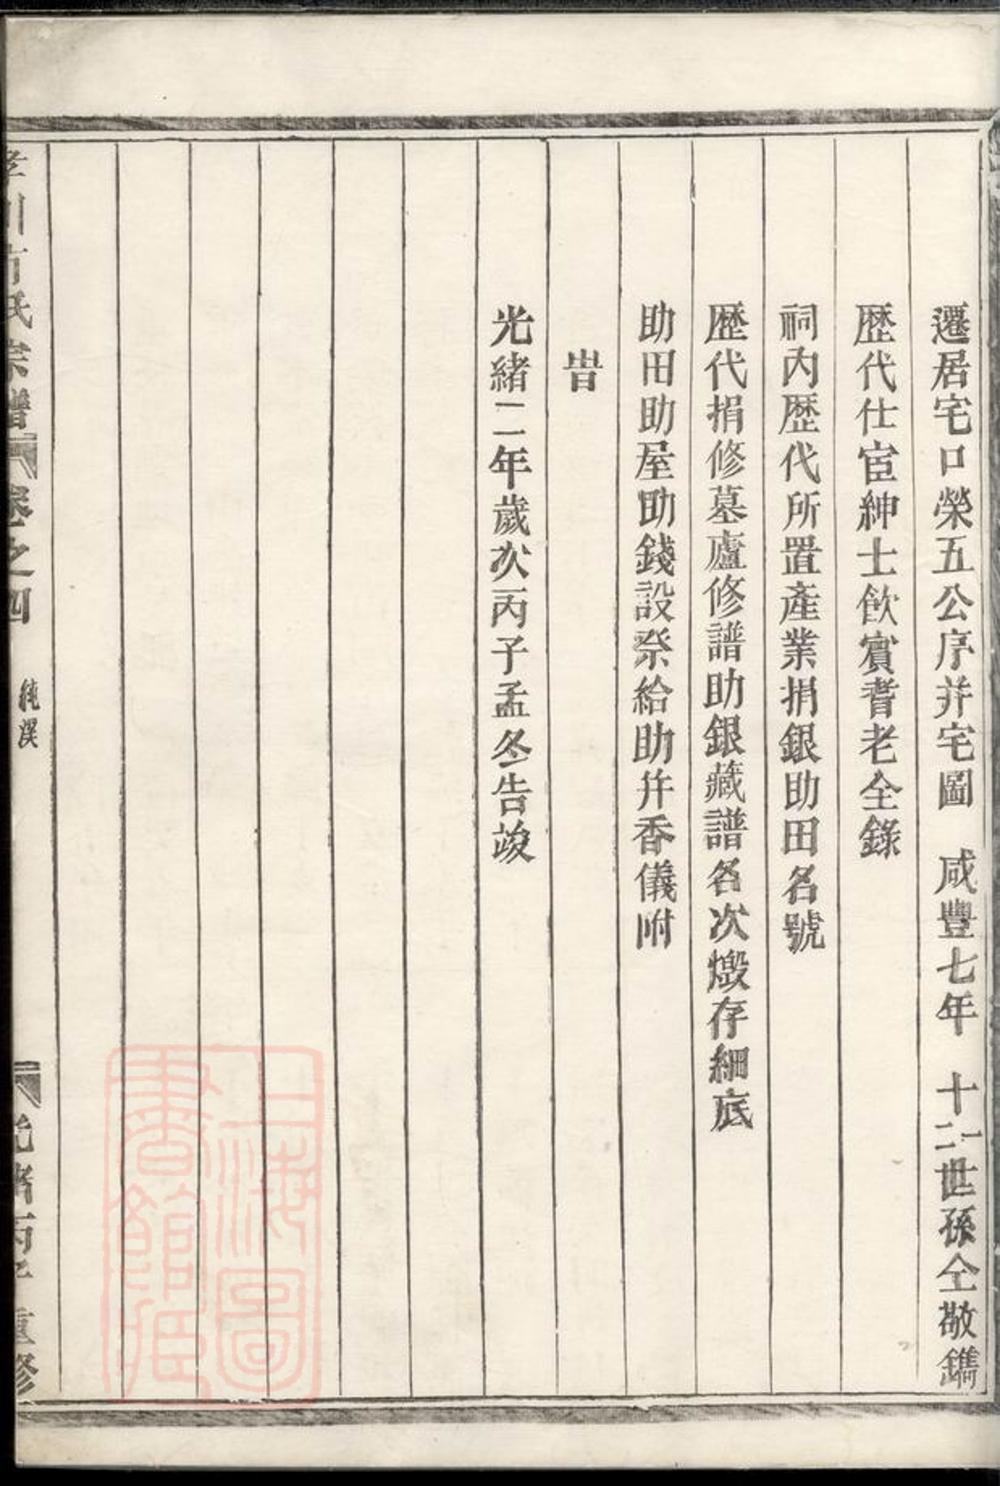 遷居宅口榮五公序并宅圖 咸豐七年 十二世孫仝敬鐫
歷代仕宦紳士飲賓耆老全錄
祠內歷代所置產業捐銀助田名號
歷代捐修墓廬修譜助銀藏譜各次燬存細底
助田助屋助錢設祭給助并香儀附
旹
光緒二年歲次丙子孟冬告竣
氏宗譜 卷之四 純溪 光緒丙子重修
上海圖書館藏